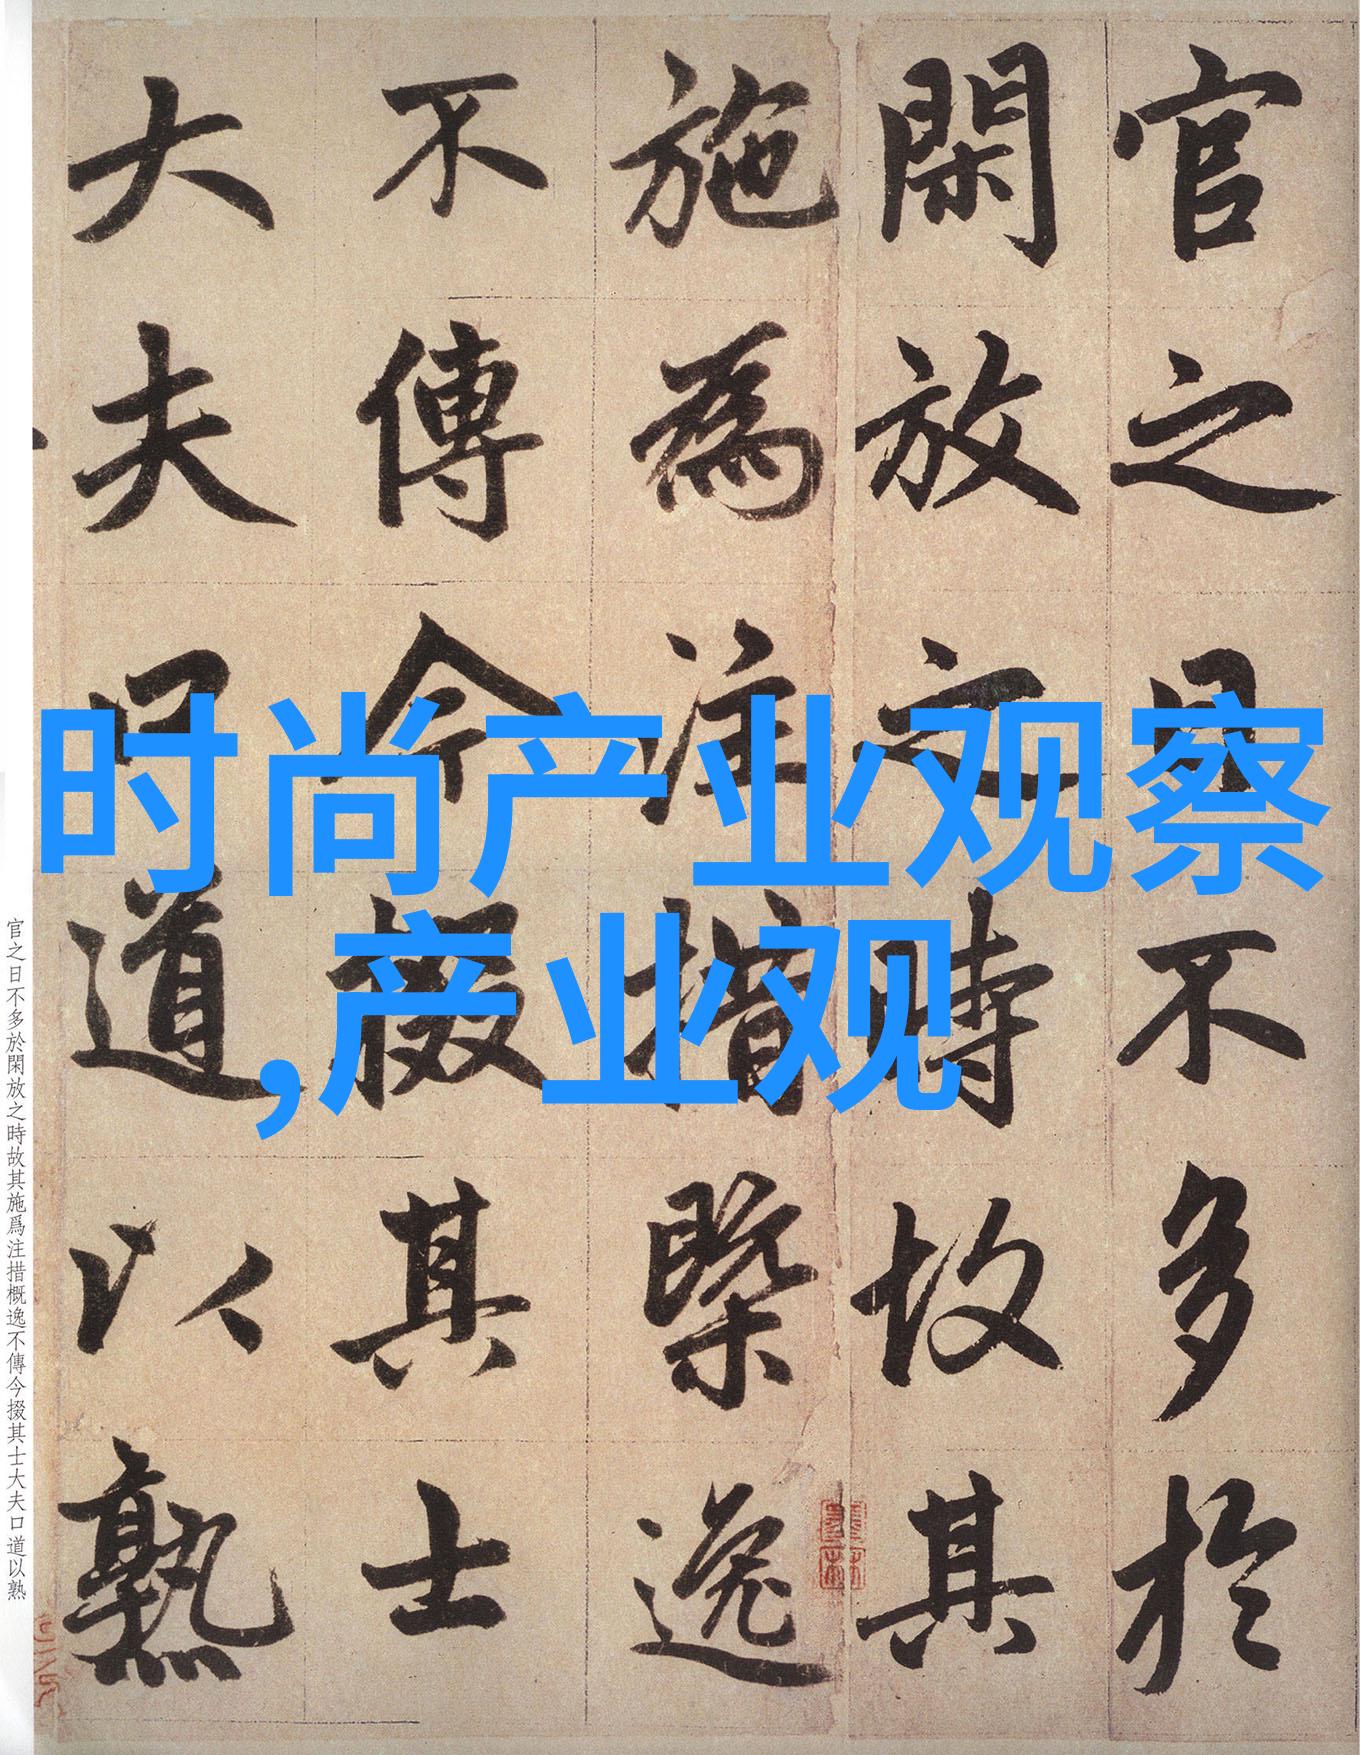 官之日不多於
閑放之時故其
施為注措槩逸
不傳今掇其士
大夫口道以熟
时尚产业观察
,产业观
官之日不多於閑放之時故其施爲注措概逸不傳今掇其士大夫口道以熟